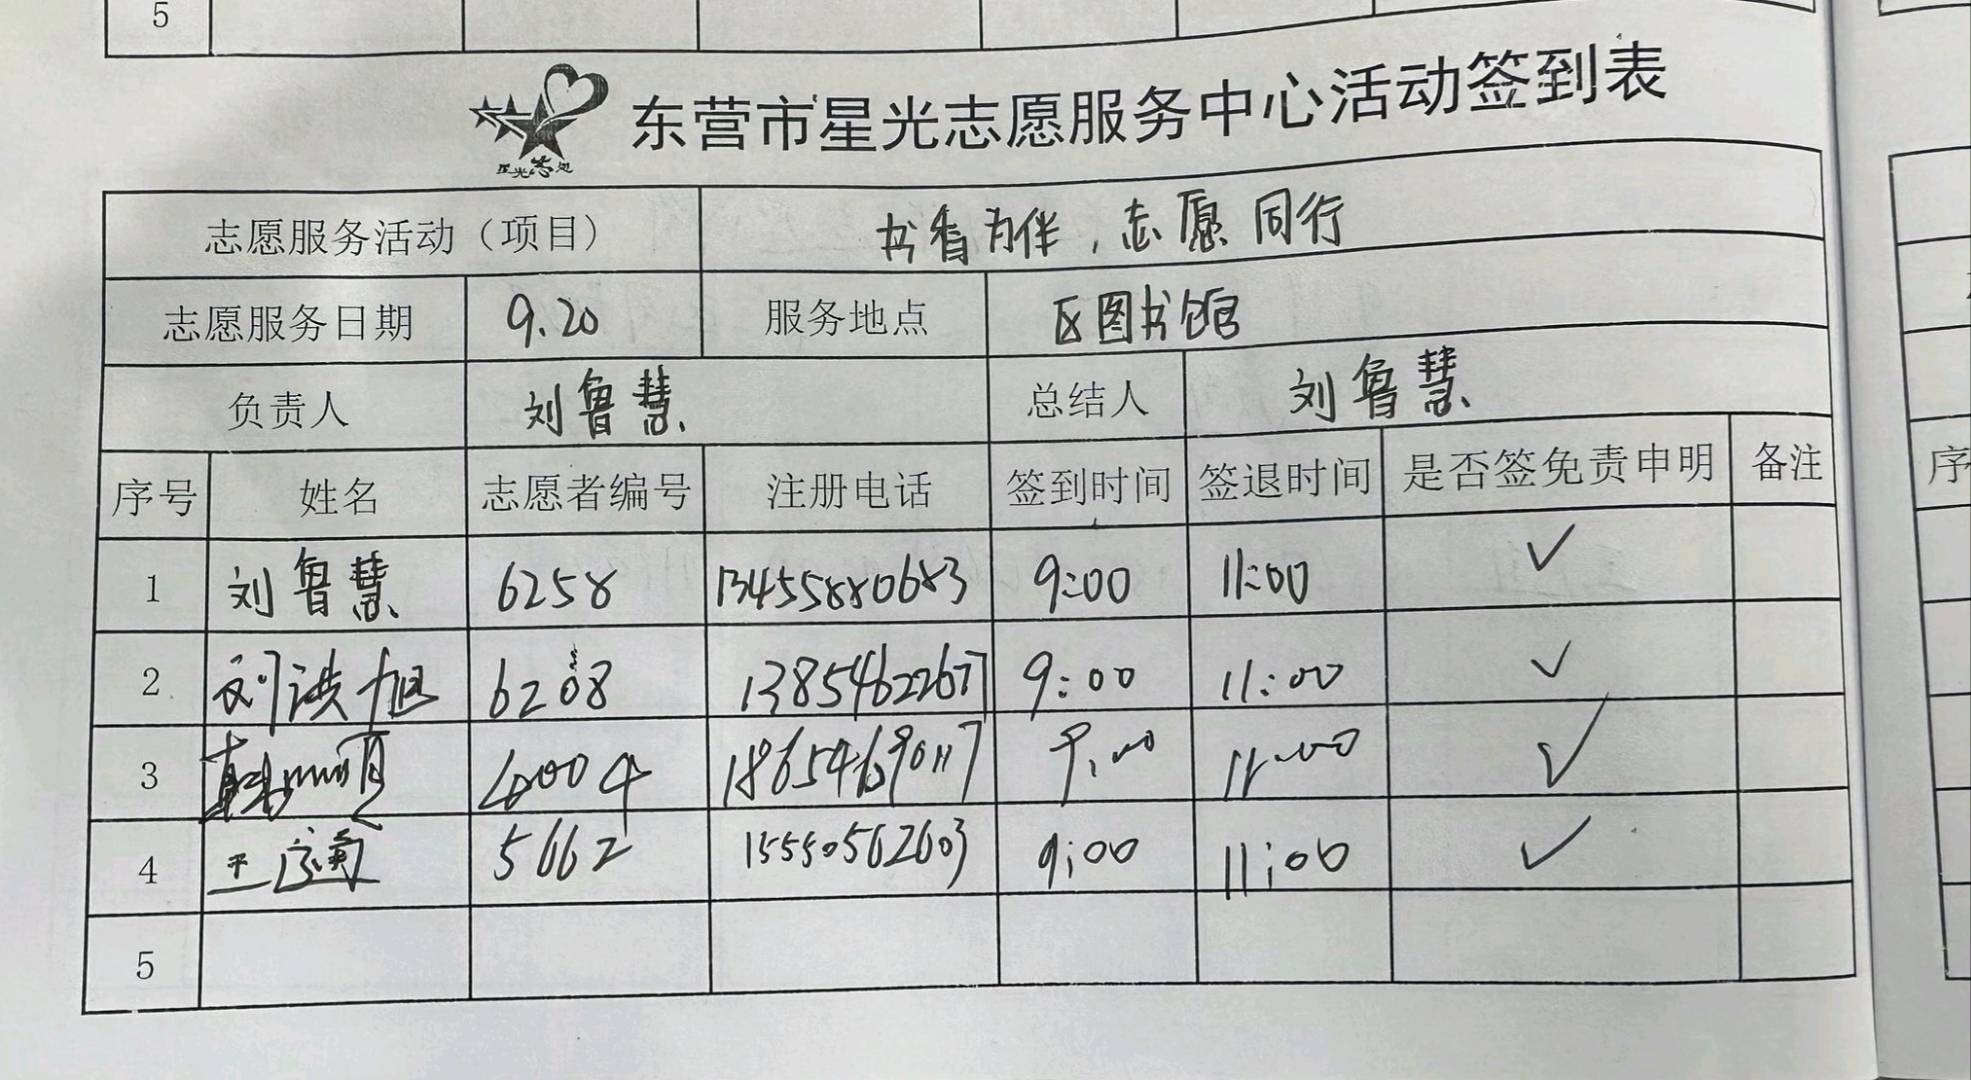 5
东营市星光志愿服务中心活动签到表
星光志愿
志愿服务活动（项目） 书香为伴，志愿同行
志愿服务日期 9.20 服务地点 区图书馆
负责人 刘鲁慧 总结人 刘鲁慧
序号 姓名 志愿者编号 注册电话 签到时间 签退时间 是否签免责申明 备注 序
1 刘鲁慧 6258 13455880683 9:00 11:00 ✓
2 刘洪旭 6208 13854622677 9:00 11:00 ✓
3 6004 18654690117 9:00 11:00 ✓
4 5662 15550562603 9:00 11:00 ✓
5